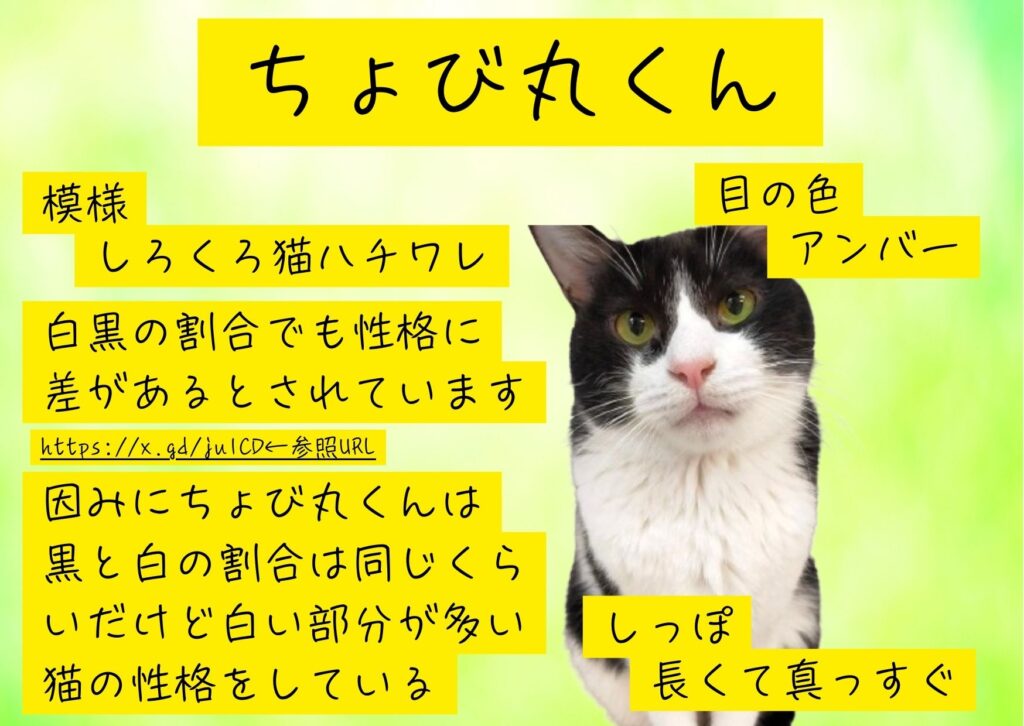 ちょび丸くん
模様
しろくろ猫ハチワレ
白黒の割合でも性格に
差があるとされています
https://x.gd/ju1CD←参照URL
因みにちょび丸くんは
黒と白の割合は同じくら
いだけど白い部分が多い
猫の性格をしている
目の色
アンバー
しっぽ
長くて真っすぐ